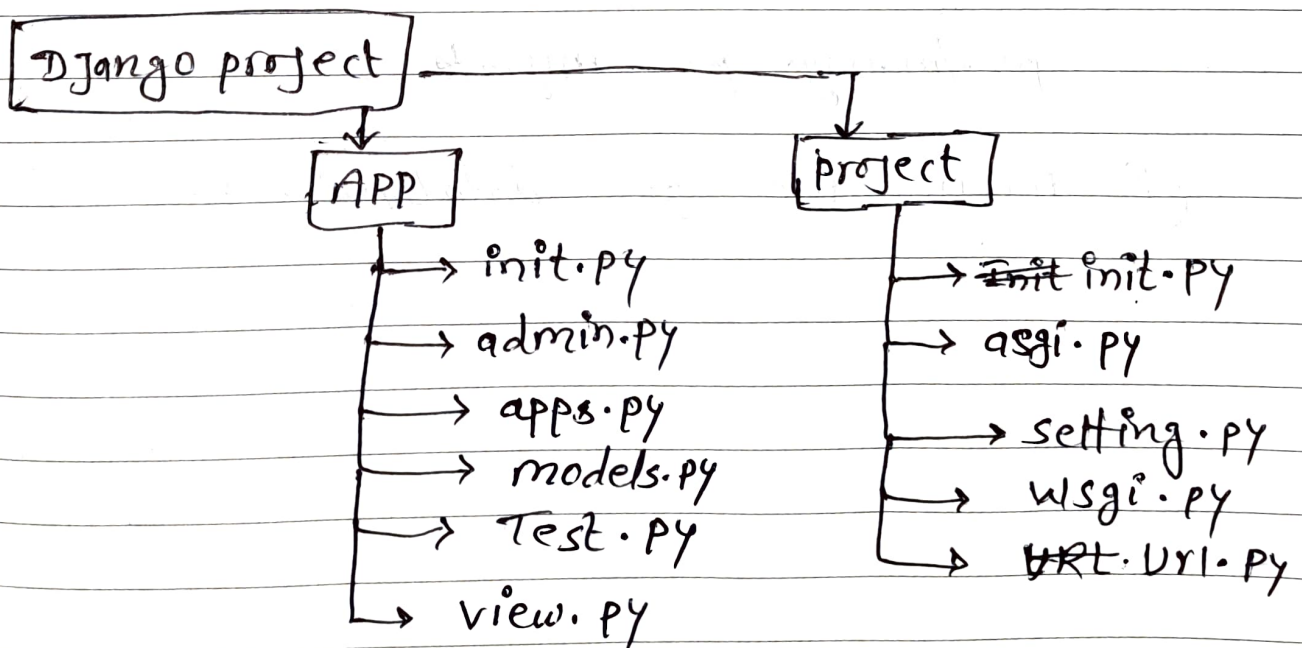 Django project
APP
project
init.py
admin.py
apps.py
models.py
Test.py
view.py
Init init.py
asgi.py
setting.py
wsgi.py
URL. Url.py